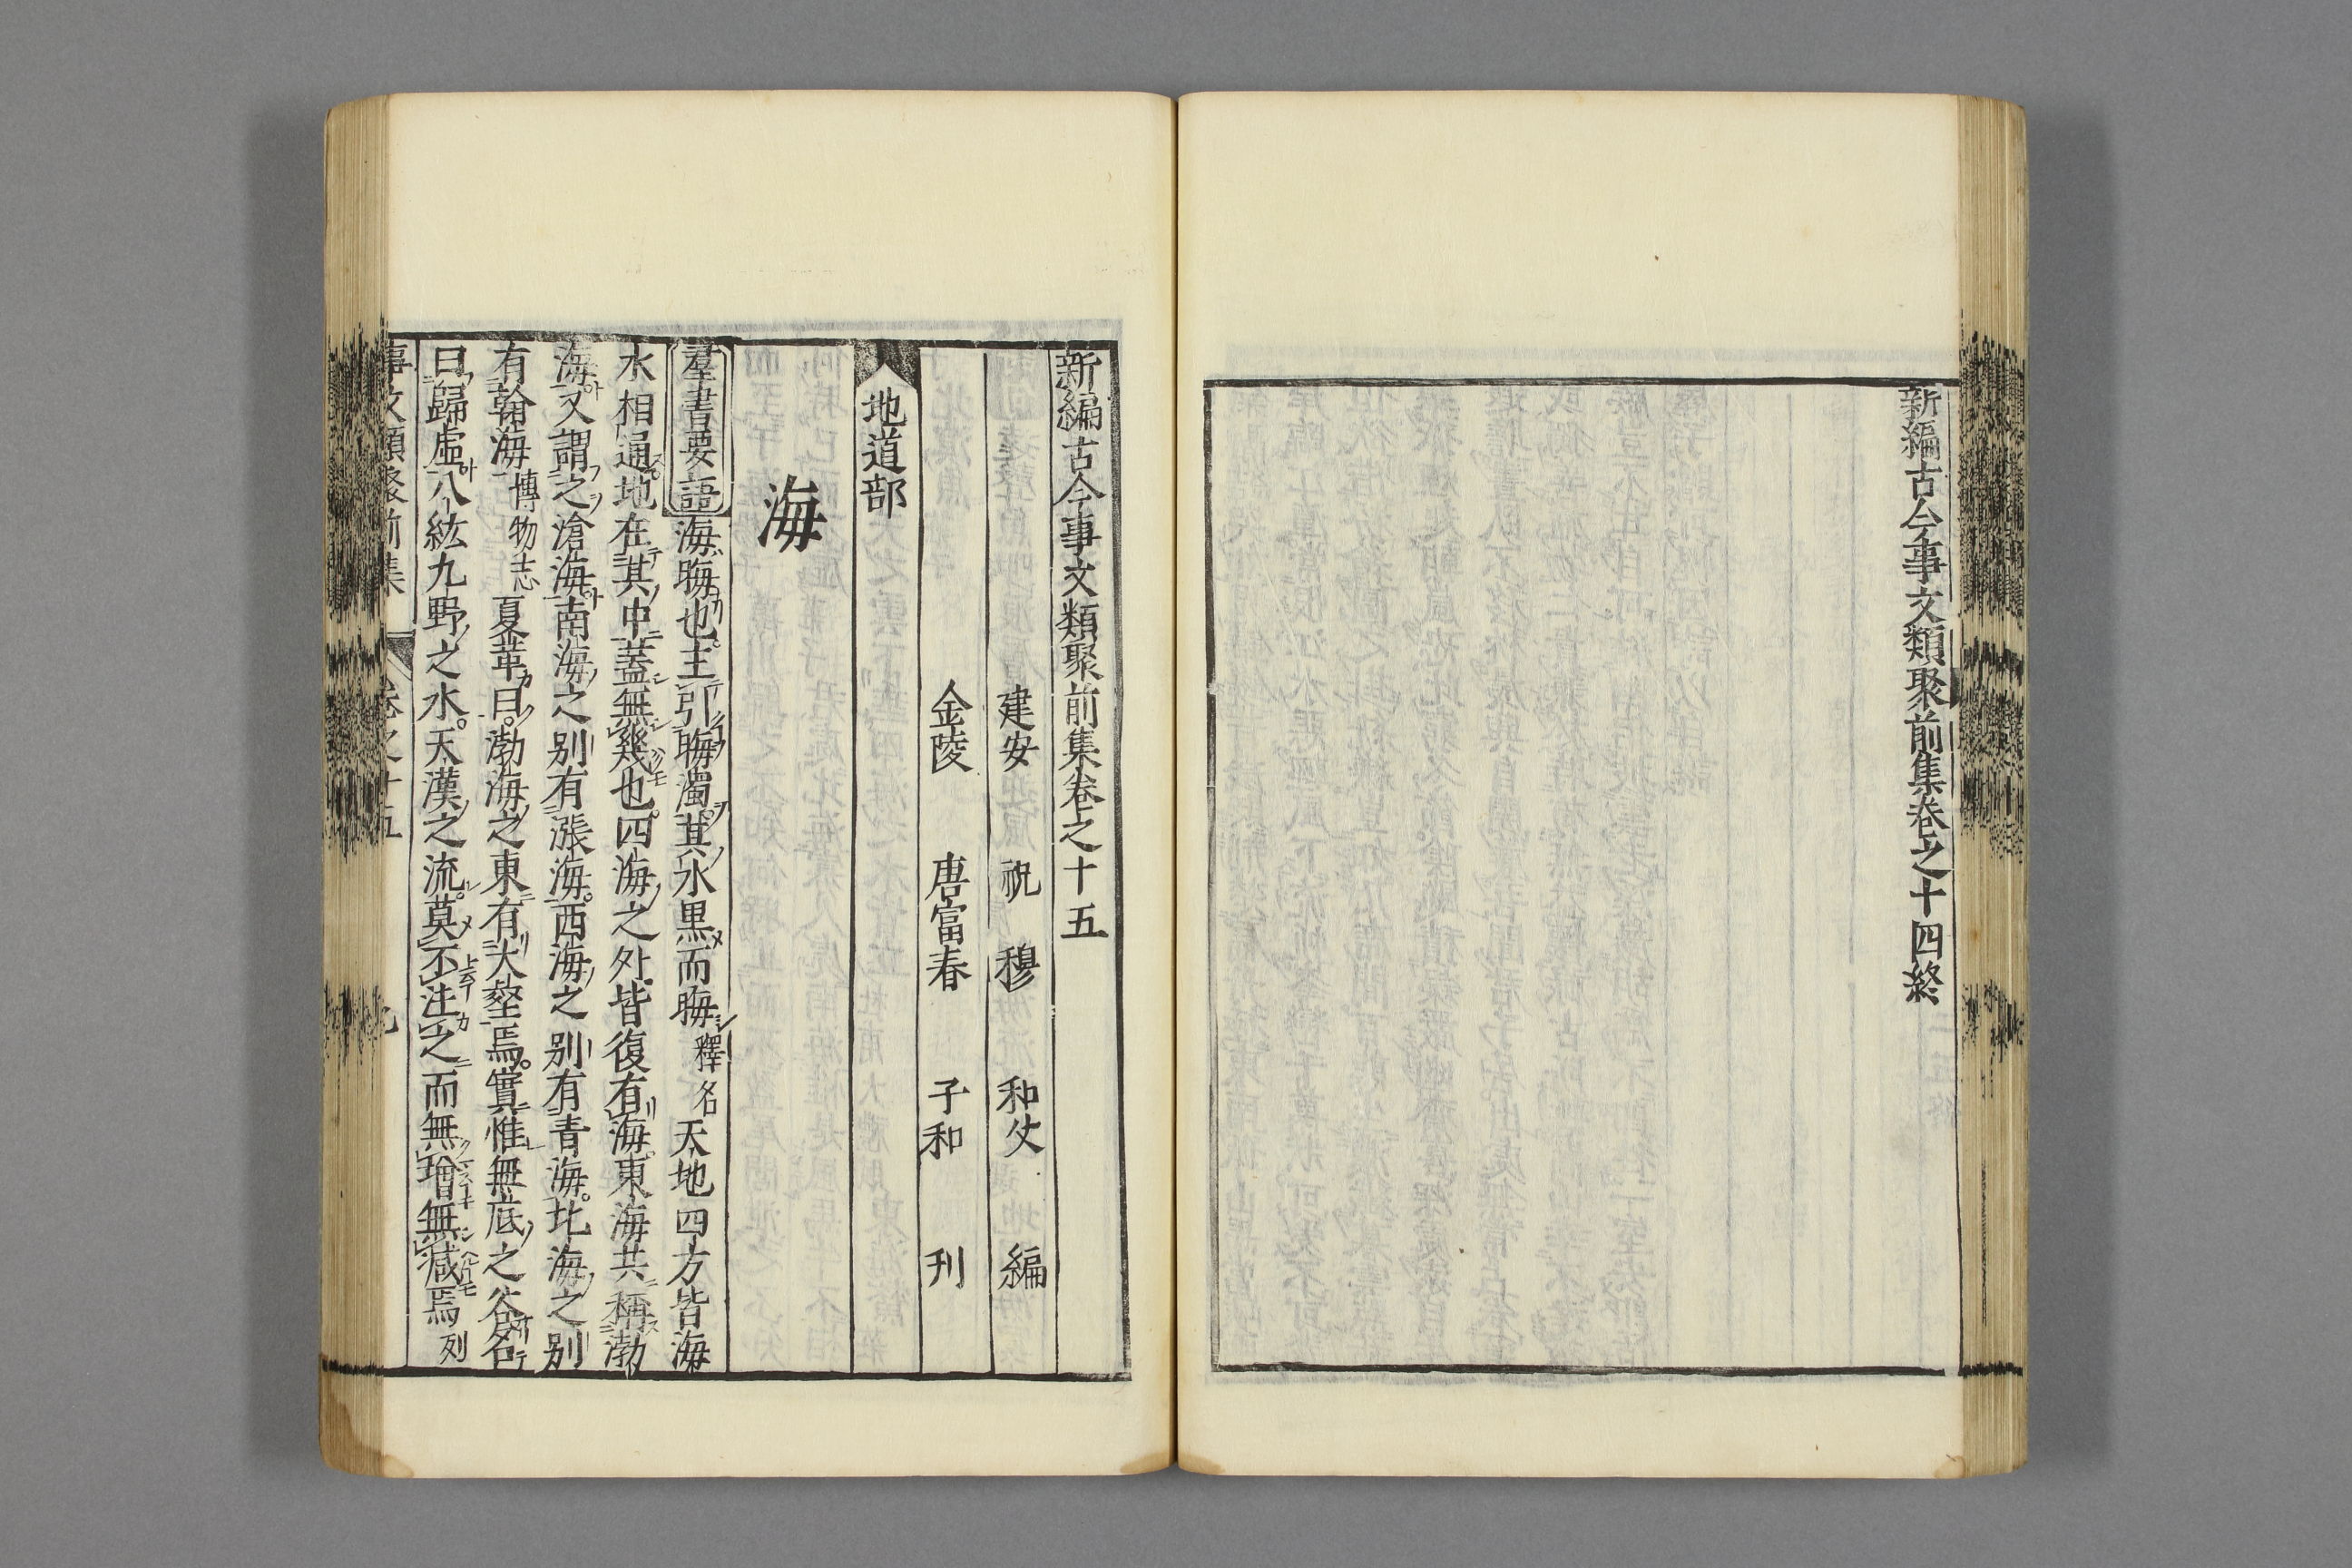 新編古今事文類聚前集卷之十四終
新編古今事文類聚前集卷之十五
建安 祝 穆 和父 編
金陵 唐富春 子和 刋
地道部
海
羣書要語海晦也主引晦濁其水黒而晦釋名天地四方皆海
水相通地在其中蓋無幾也四海之外皆復有海東海共稱渤
海又謂之滄海南海之别有漲海西海之别有青海北海之别
有翰海博物志夏革曰渤海之東有大壑焉實惟無底之谷名
曰歸虛八紘九野之水天漢之流莫不注之而無增無減焉列
事文類聚前集 卷之十五